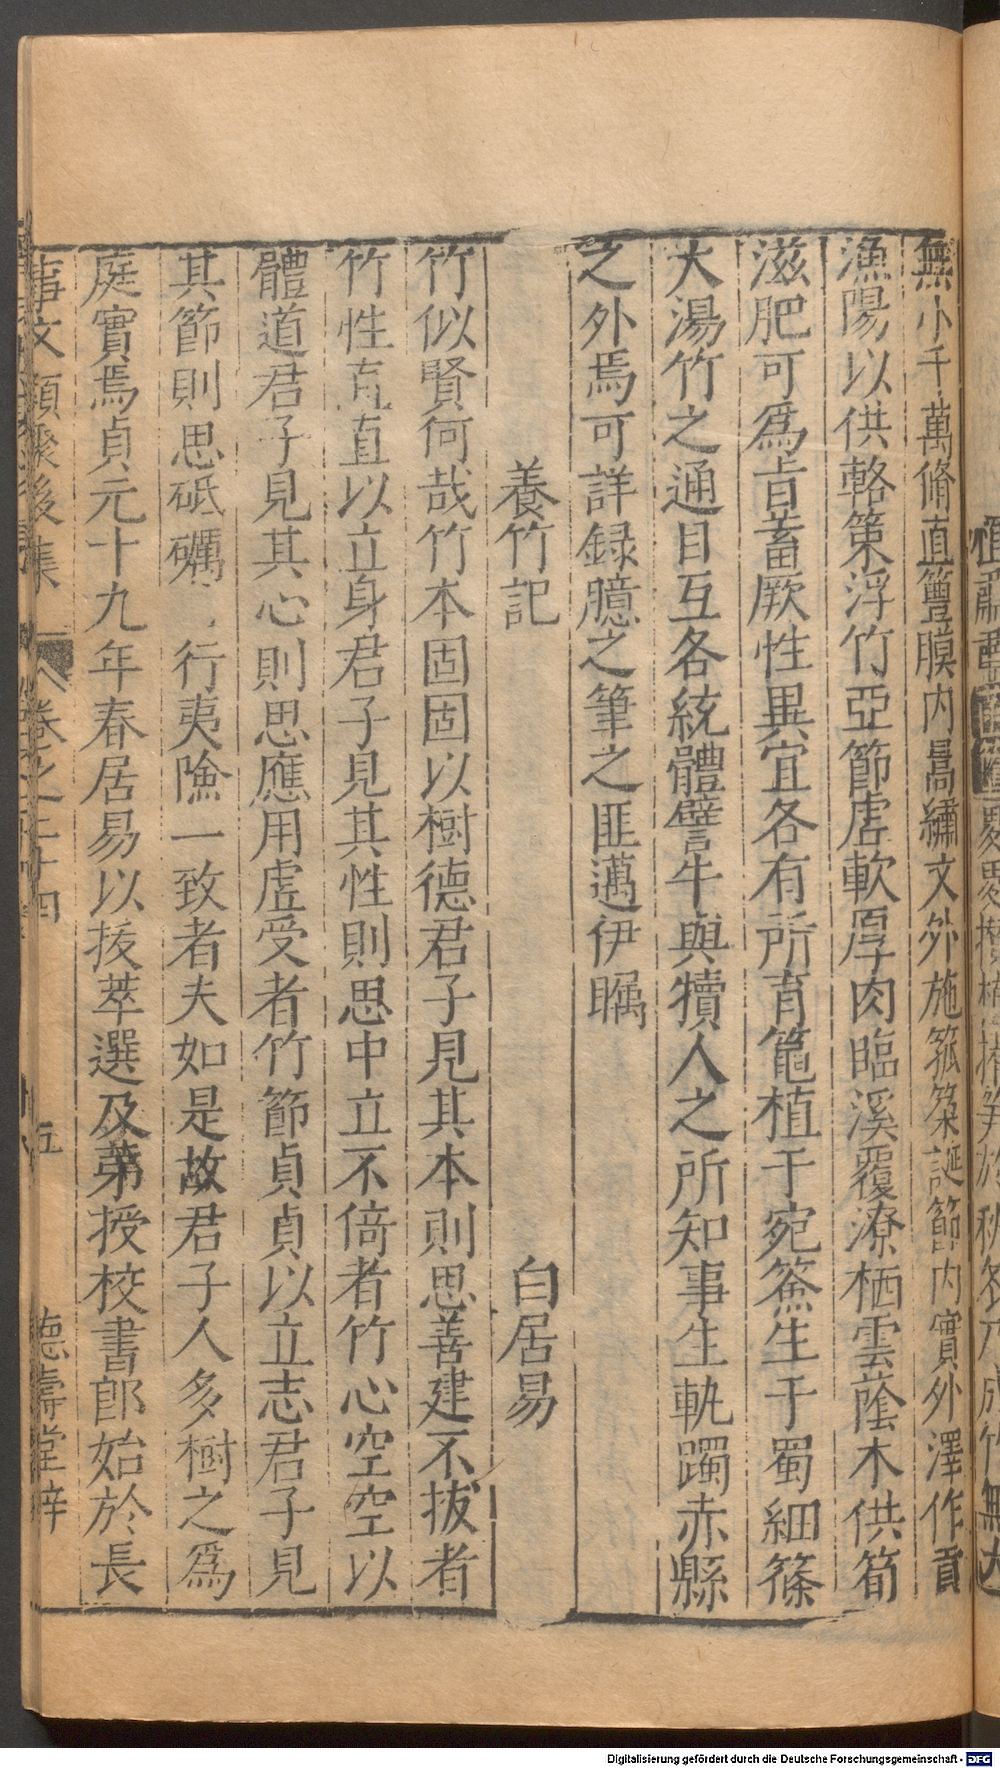 無小千萬脩直簹膜内暠繡文外施箛䇹誕節内實外澤作貢
漁陽以供輅策浮竹亞節虗軟厚肉臨溪覆潦栖雲蔭木供筍
滋肥可為旨蓄厥性異宜各有所育簄植于宛䈥生于蜀細篠
大湯竹之通目互各統體譬牛與犢人之所知事生軌躅赤縣
之外焉可詳録臆之筆之匪邁伊矚
養竹記 白居易
竹似賢何哉竹本固固以樹德君子見其本則思善建不拔者
竹性直直以立身君子見其性則思中立不倚者竹心空空以
體道君子見其心則思應用虗受者竹節貞貞以立志君子見
其節則思砥礪 行夷險一致者夫如是故君子人多樹之爲
庭實焉貞元十九年春居易以拔萃選及第授校書郎始於長
事文類聚後集 卷之二十四 五 德壽堂梓
Digitalisierung gefördert durch die Deutsche Forschungsgemeinschaft - DFG